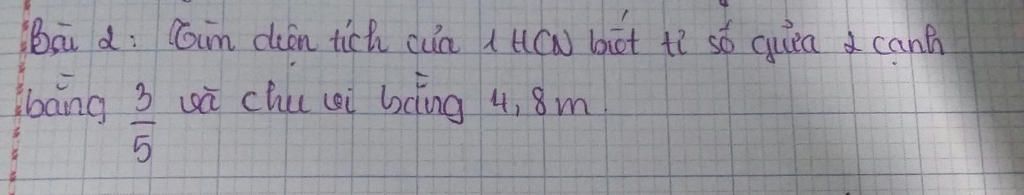 Bài 2: Tìm diện tích của 1 HCN biết tỉ số giữa 2 cạnh
bằng 3/5 và chu vi bằng 4,8m.